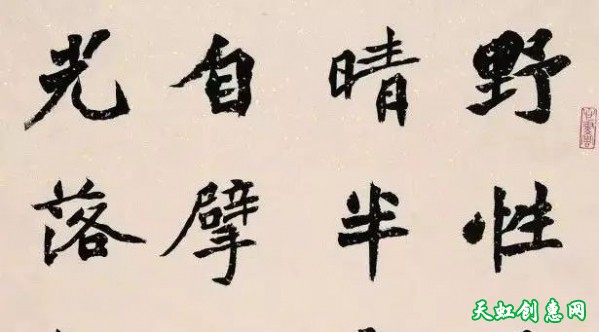 野性
晴半
自擘
光落
天虹创意网